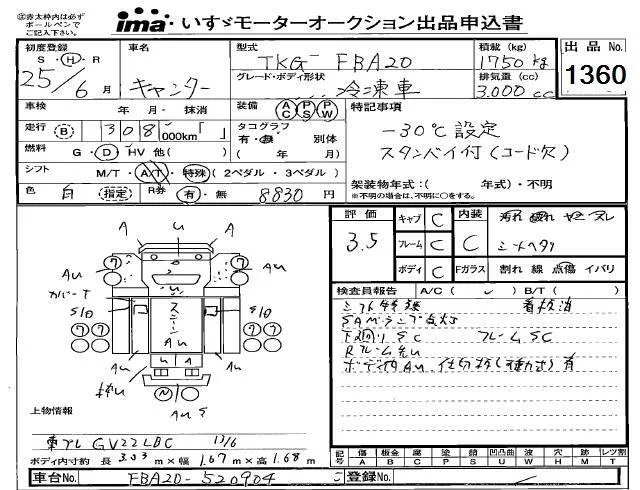 ◎赤太枠内は必ず
ボールペンで
ご記入下さい。
ima いすゞモーターオークション出品申込書
初度登録 S・H・R
25/6 月
車名
キャンター
型式
TKG- FBA20
グレード・ボディ形状
冷凍車
積載(kg)
1750 kg
排気量(cc)
3.000 cc
出品 No.
1360
車検 年 月・抹消
走行 B 308,000km「 」
燃料 G・D・HV 他( )
シフト M/T・A/T・特殊(2ペダル・3ペダル)
色 白 指定 R券 有・無 8830 円
装備 AC PS PW
タコグラフ 別体
有・無
( 年 月)
特記事項
-30℃設定
スタンバイ付(コード欠)
架装物年式:( 年式)・不明
※不明の場合は、不明に○をする。
評価
3.5
キャブ C
フレーム C
ボディ C
内装 C
汚れ 破れ ヤニ スレ
シートヘタリ
Fガラス 割れ 線 点傷 イバリ
検査員報告 A/C( ✓ ) B/T( )
シフト特殊 看板消
SAベランプ点灯
下廻りSC フレームSC
RフレームU
A U A
Au Au
カバーT
S10 S10
スチール
Au
U U
Au Au
Au S
上物情報
東プレ GV22LBC 13/6
ボディ内寸約 長 3.03 m×幅 1.67 m×高 1.68 m
記号 傷 A 板金 B 腐 C 塗 P 錆 S 凹凸曲 U 波 W 穴 H 跡 M ミト T レツ割
車台No. FBA20-520904
登録No.